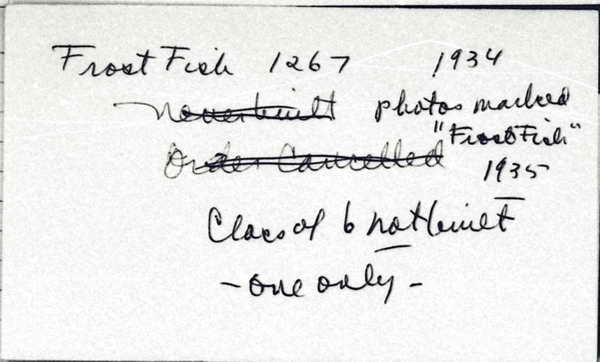 Frost Fish 1267 1934
never built photos marked
"Frost Fish"
Order Cancelled 1935
Class of 6 not built
- one only -